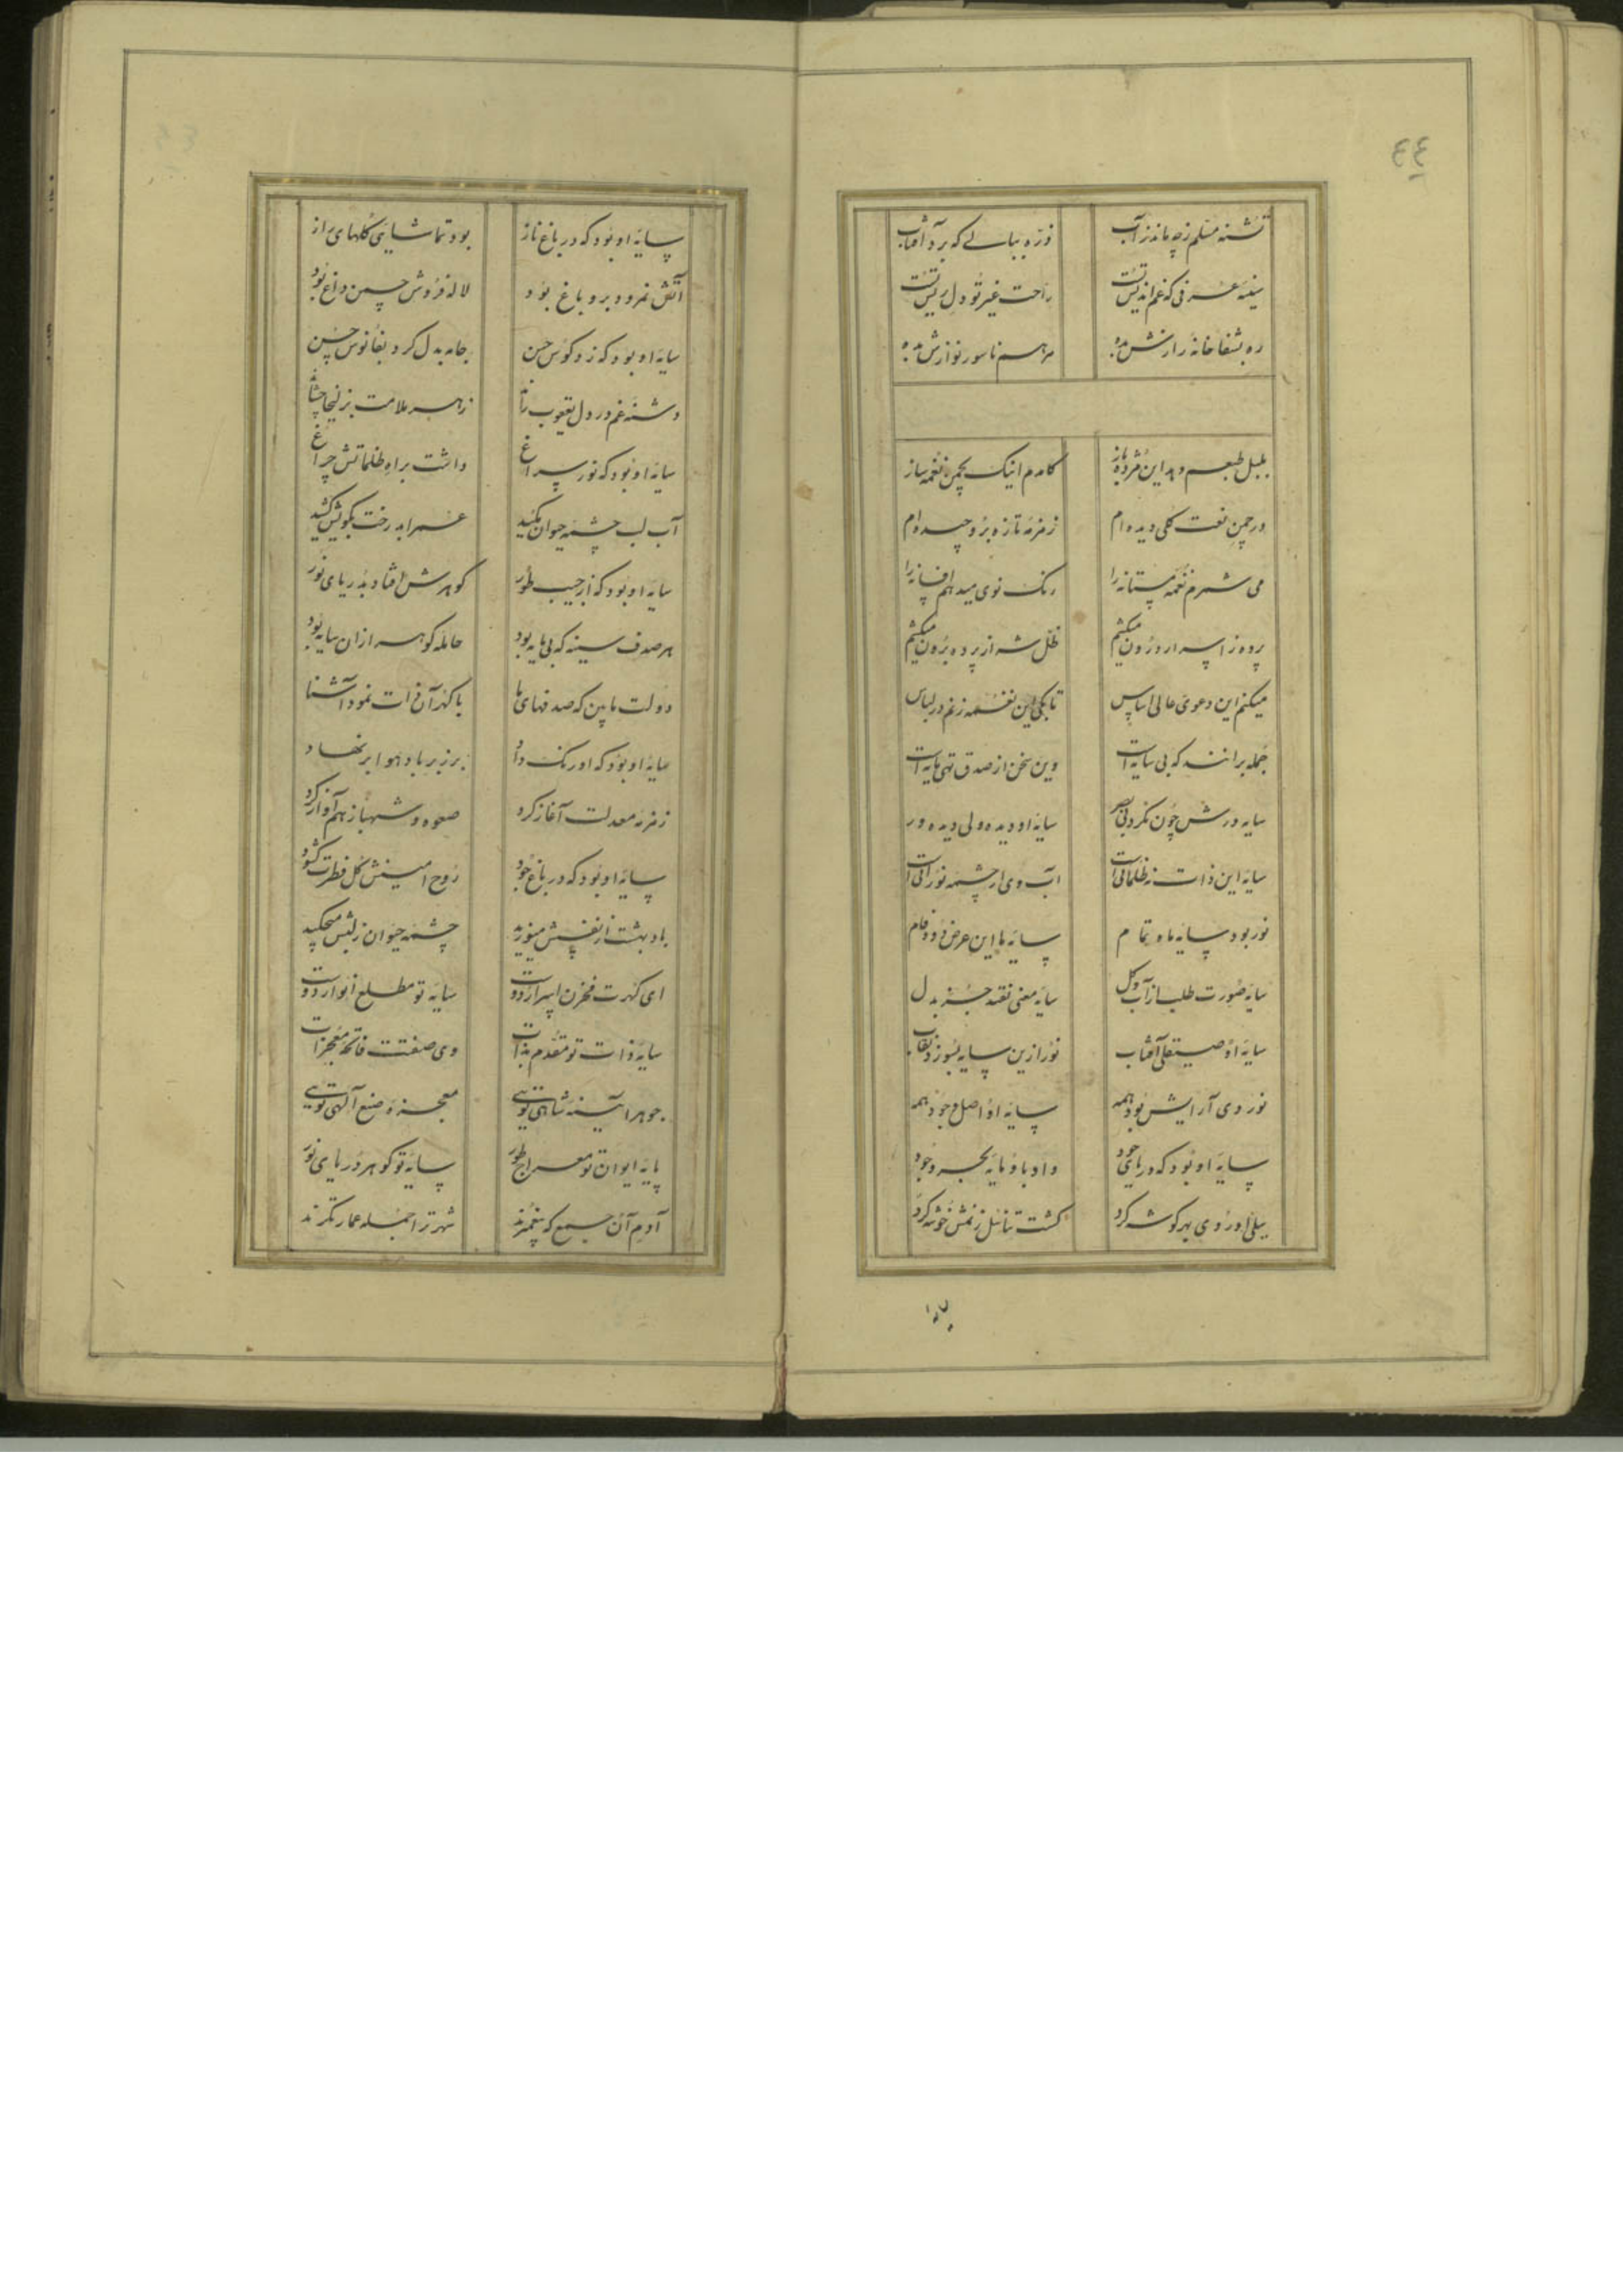 ٤٤
تشنه مسلم ز چه ماند ز آب ذره ببالی که برد آفتاب
سینه عرفی که غم اندیش تست راحت غیر تو دل ریش تست
ره بشفاخانه رازش بده مرهم ناسور نوازش بده
بلبل طبعم دهد این مژده باز کامدم اینک بچمن نغمه ساز
در چمن نعت گلی دیده ام زمزمه تازه بر و چیده ام
می شمرم نغمه مستانه را رنک نوی میدهم افسانه را
پرده ز اسرار درون میکشم ظل شه از پرده برون میکشم
میکنم این دعوی عالی اساس تا بکی این نغمه زنم در لباس
جمله برانند که بی سایه است وین سخن از صدق تهی مایه است
سایه ورش چون نکرد بی بصر سایه او دیده ولی دیده ور
سایه این ذات نه ظلمانی است آب وی از چشمه نورانی است
نور بود سایه ماه تمام سایه ما این عرض دود فام
سایه صورت طلب از آب و کل سایه معنی نفتد جز بدل
سایه او صیقلی آفتاب نور ازین سایه بسوزد نقاب
نور وی آرایش بود همه سایه او اصل وجود همه
سایه او بود که دریای جود داد باو مایه بحر وجود
سیلی او روی بهر کوشه کرد کشت تناسل ز نمش خوشه کرد
سایه
سایه او بود که در باغ ناز بود تماشایی کلهای راز
آتش نمرود برو باغ بود لاله فروش چمن داغ بود
سایه او بود که زد کوس حسن جامه بدل کرد بفانوس حسن
دشنه غم در دل یعقوب راند زهر ملامت بزلیخا چشاند
سایه او بود که نور سراغ داشت براه ظلماتش چراغ
آب لب چشمه حیوان مکید عمر ابد رخت بکویش کشید
سایه او بود که از جیب طور کوهرش افتاد بدریای نور
هر صدف سینه که بی مایه بود حامله کوهر از ان سایه بود
دولت ما بین که صدفهای ما با کهر آن ذات نمود آشنا
سایه او بود که اورنک داد بر زبر باد هوا بر نهاد
زمزمه معدلت آغاز کرد صعوه و شهباز هم آواز کرد
سایه او بود که در باغ جود روح امینش کل فطرت کشود
باد بهشت از نفسش میوزید چشمه حیوان ز لبش میچکید
ای کهرت مخزن اسرار دوست سایه تو مطلع انوار دوست
سایه ذات تو مقدم بذات وی صفتت فاتحه معجزات
جوهر آیینه شاهی تویی معجزه صنع الهی تویی
پایه ایوان تو معراج طور سایه تو کوهر دریای نور
آدم آن جمع که پیغمبرند شهر ترا جمله عمارتکرند